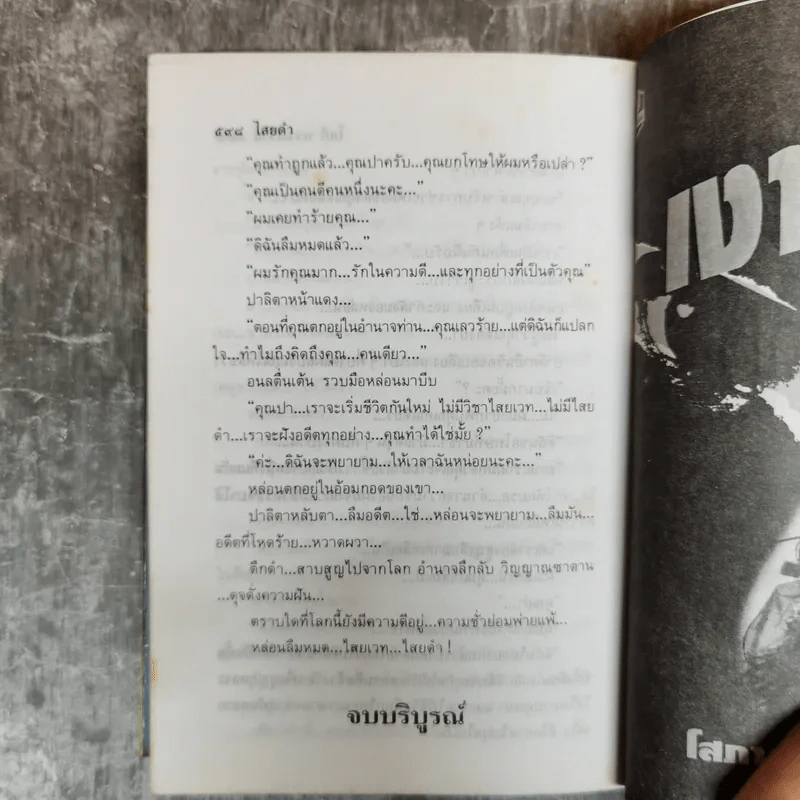 ๕๙๘ ไสยดำ
“คุณทำถูกแล้ว...คุณปาครับ...คุณยกโทษให้ผมหรือเปล่า ?”
“คุณเป็นคนดีคนหนึ่งนะคะ...”
“ผมเคยทำร้ายคุณ...”
“ดิฉันลืมหมดแล้ว...”
“ผมรักคุณมาก...รักในความดี...และทุกอย่างที่เป็นตัวคุณ”
ปาลิตาหน้าแดง...
“ตอนที่คุณตกอยู่ในอำนาจท่าน...คุณเลวร้าย...แต่ดิฉันก็แปลก
ใจ...ทำไมถึงคิดถึงคุณ...คนเดียว...”
อนลตื่นเต้น รวบมือหล่อนมาบีบ
“คุณปา...เราจะเริ่มชีวิตกันใหม่ ไม่มีวิชาไสยเวท...ไม่มีไสย
ดำ...เราจะฝังอดีตทุกอย่าง...คุณทำได้ใช่มั้ย ?”
“ค่ะ...ดิฉันจะพยายาม...ให้เวลาฉันหน่อยนะคะ...”
หล่อนตกอยู่ในอ้อมกอดของเขา...
ปาลิตาหลับตา...ลืมอดีต...ใช่...หล่อนจะพยายาม...ลืมมัน...
อดีตที่โหดร้าย...หวาดผวา...
ตึกดำ...สาบสูญไปจากโลก อำนาจลึกลับ วิญญาณซาตาน
...ดุจดั่งความฝัน...
ตราบใดที่โลกนี้ยังมีความดีอยู่...ความชั่วย่อมพ่ายแพ้...
หล่อนลืมหมด...ไสยเวท...ไสยดำ !
จบบริบูรณ์